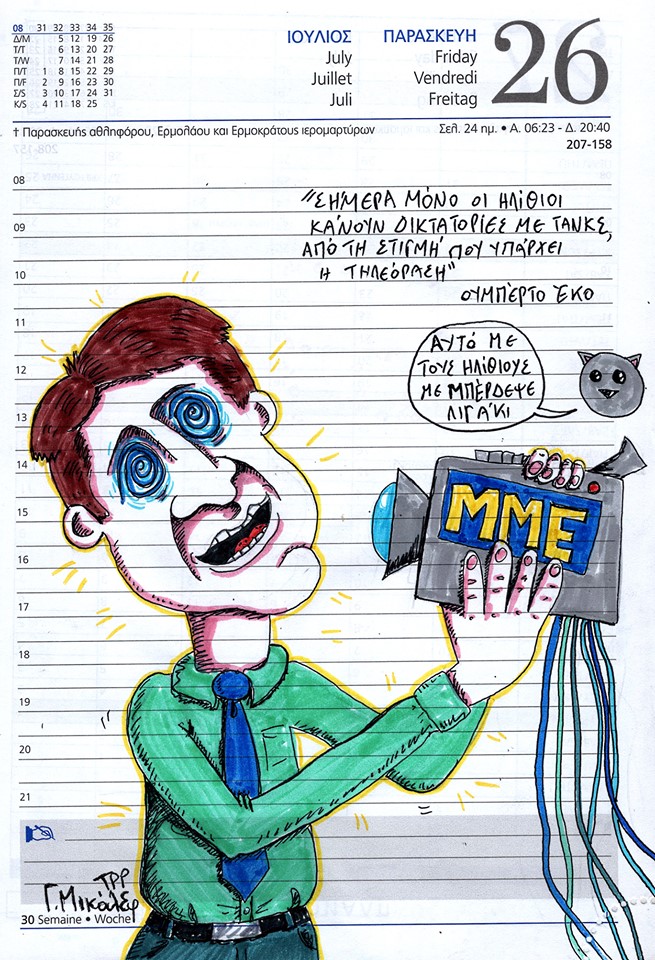 08 31 32 33 34 35
Δ/M 5 12 19 26
T/T 6 13 20 27
T/W 7 14 21 28
Π/T 1 8 15 22 29
Π/F 2 9 16 23 30
Σ/S 3 10 17 24 31
K/S 4 11 18 25
ΙΟΥΛΙΟΣ ΠΑΡΑΣΚΕΥΗ
July Friday
Juillet Vendredi
Juli Freitag
26
† Παρασκευής αθληφόρου, Ερμολάου και Ερμοκράτους ιερομαρτύρων Σελ. 24 ημ. • Α. 06:23 - Δ. 20:40
207-158
08
"ΣΉΜΕΡΑ ΜΌΝΟ ΟΙ ΗΛΊΘΙΟΙ
09 ΚΆΝΟΥΝ ΔΙΚΤΑΤΟΡΊΕΣ ΜΕ ΤΑΝΚΣ,
ΑΠΌ ΤΗ ΣΤΙΓΜΉ ΠΟΥ ΥΠΆΡΧΕΙ
10 Η ΤΗΛΕΌΡΑΣΗ"
ΟΥΜΠΈΡΤΟ ΈΚΟ
11
ΑΥΤΌ ΜΕ
ΤΟΥΣ ΗΛΊΘΙΟΥΣ
ΜΕ ΜΠΈΡΔΕΨΕ
ΛΙΓΆΚΙ
12
13
14
15
ΜΜΕ
16
17
18
19
20
21
TPP
Γ. Μικάλεφ
30 Semaine • Woche